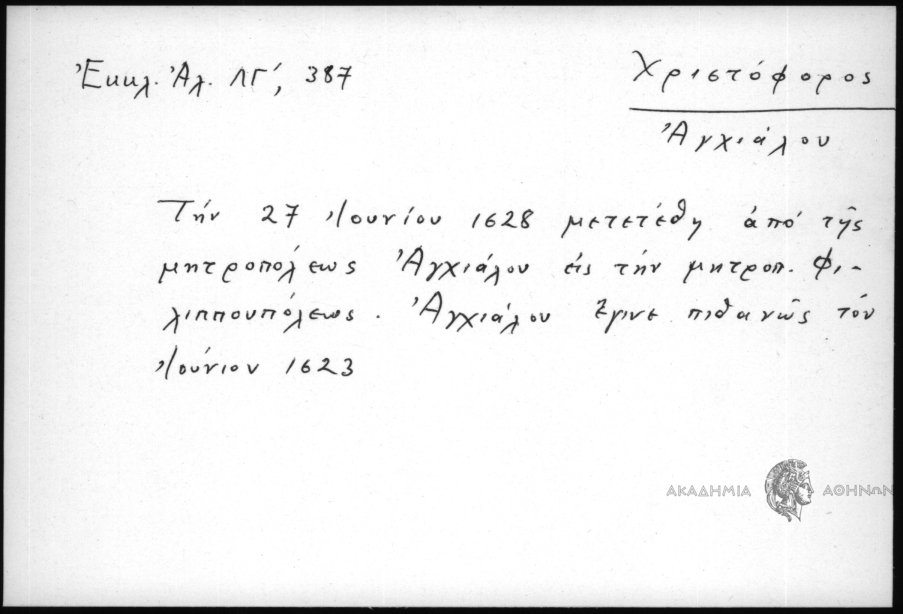 Ἐκκλ. Ἀλ. ΛΓ΄, 387
Χριστόφορος
Ἀγχιάλου
Τήν 27 Ἰουνίου 1628 μετετέθη ἀπό τῆς
μητροπόλεως Ἀγχιάλου εἰς τήν μητροπ. Φι-
λιππουπόλεως. Ἀγχιάλου ἔγινε πιθανῶς τόν
Ἰούνιον 1623
ΑΚΑΔΗΜΙΑ ΑΘΗΝΩΝ